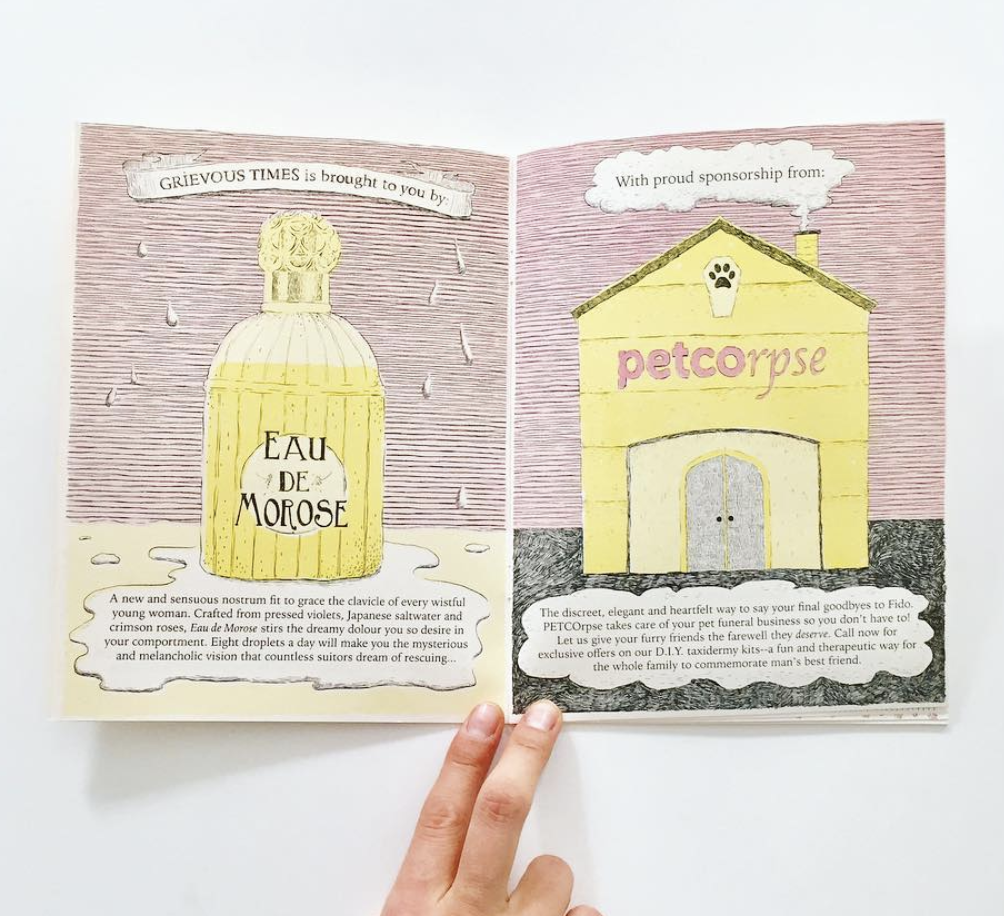 GRIEVOUS TIMES is brought to you by:
EAU
DE
MOROSE
A new and sensuous nostrum fit to grace the clavicle of every wistful
young woman. Crafted from pressed violets, Japanese saltwater and
crimson roses, Eau de Morose stirs the dreamy dolour you so desire in
your comportment. Eight droplets a day will make you the mysterious
and melancholic vision that countless suitors dream of rescuing...
With proud sponsorship from:
petcorpse
The discreet, elegant and heartfelt way to say your final goodbyes to Fido.
PETCOrpse takes care of your pet funeral business so you don't have to!
Let us give your furry friends the farewell they deserve. Call now for
exclusive offers on our D.I.Y. taxidermy kits--a fun and therapeutic way for
the whole family to commemorate man's best friend.